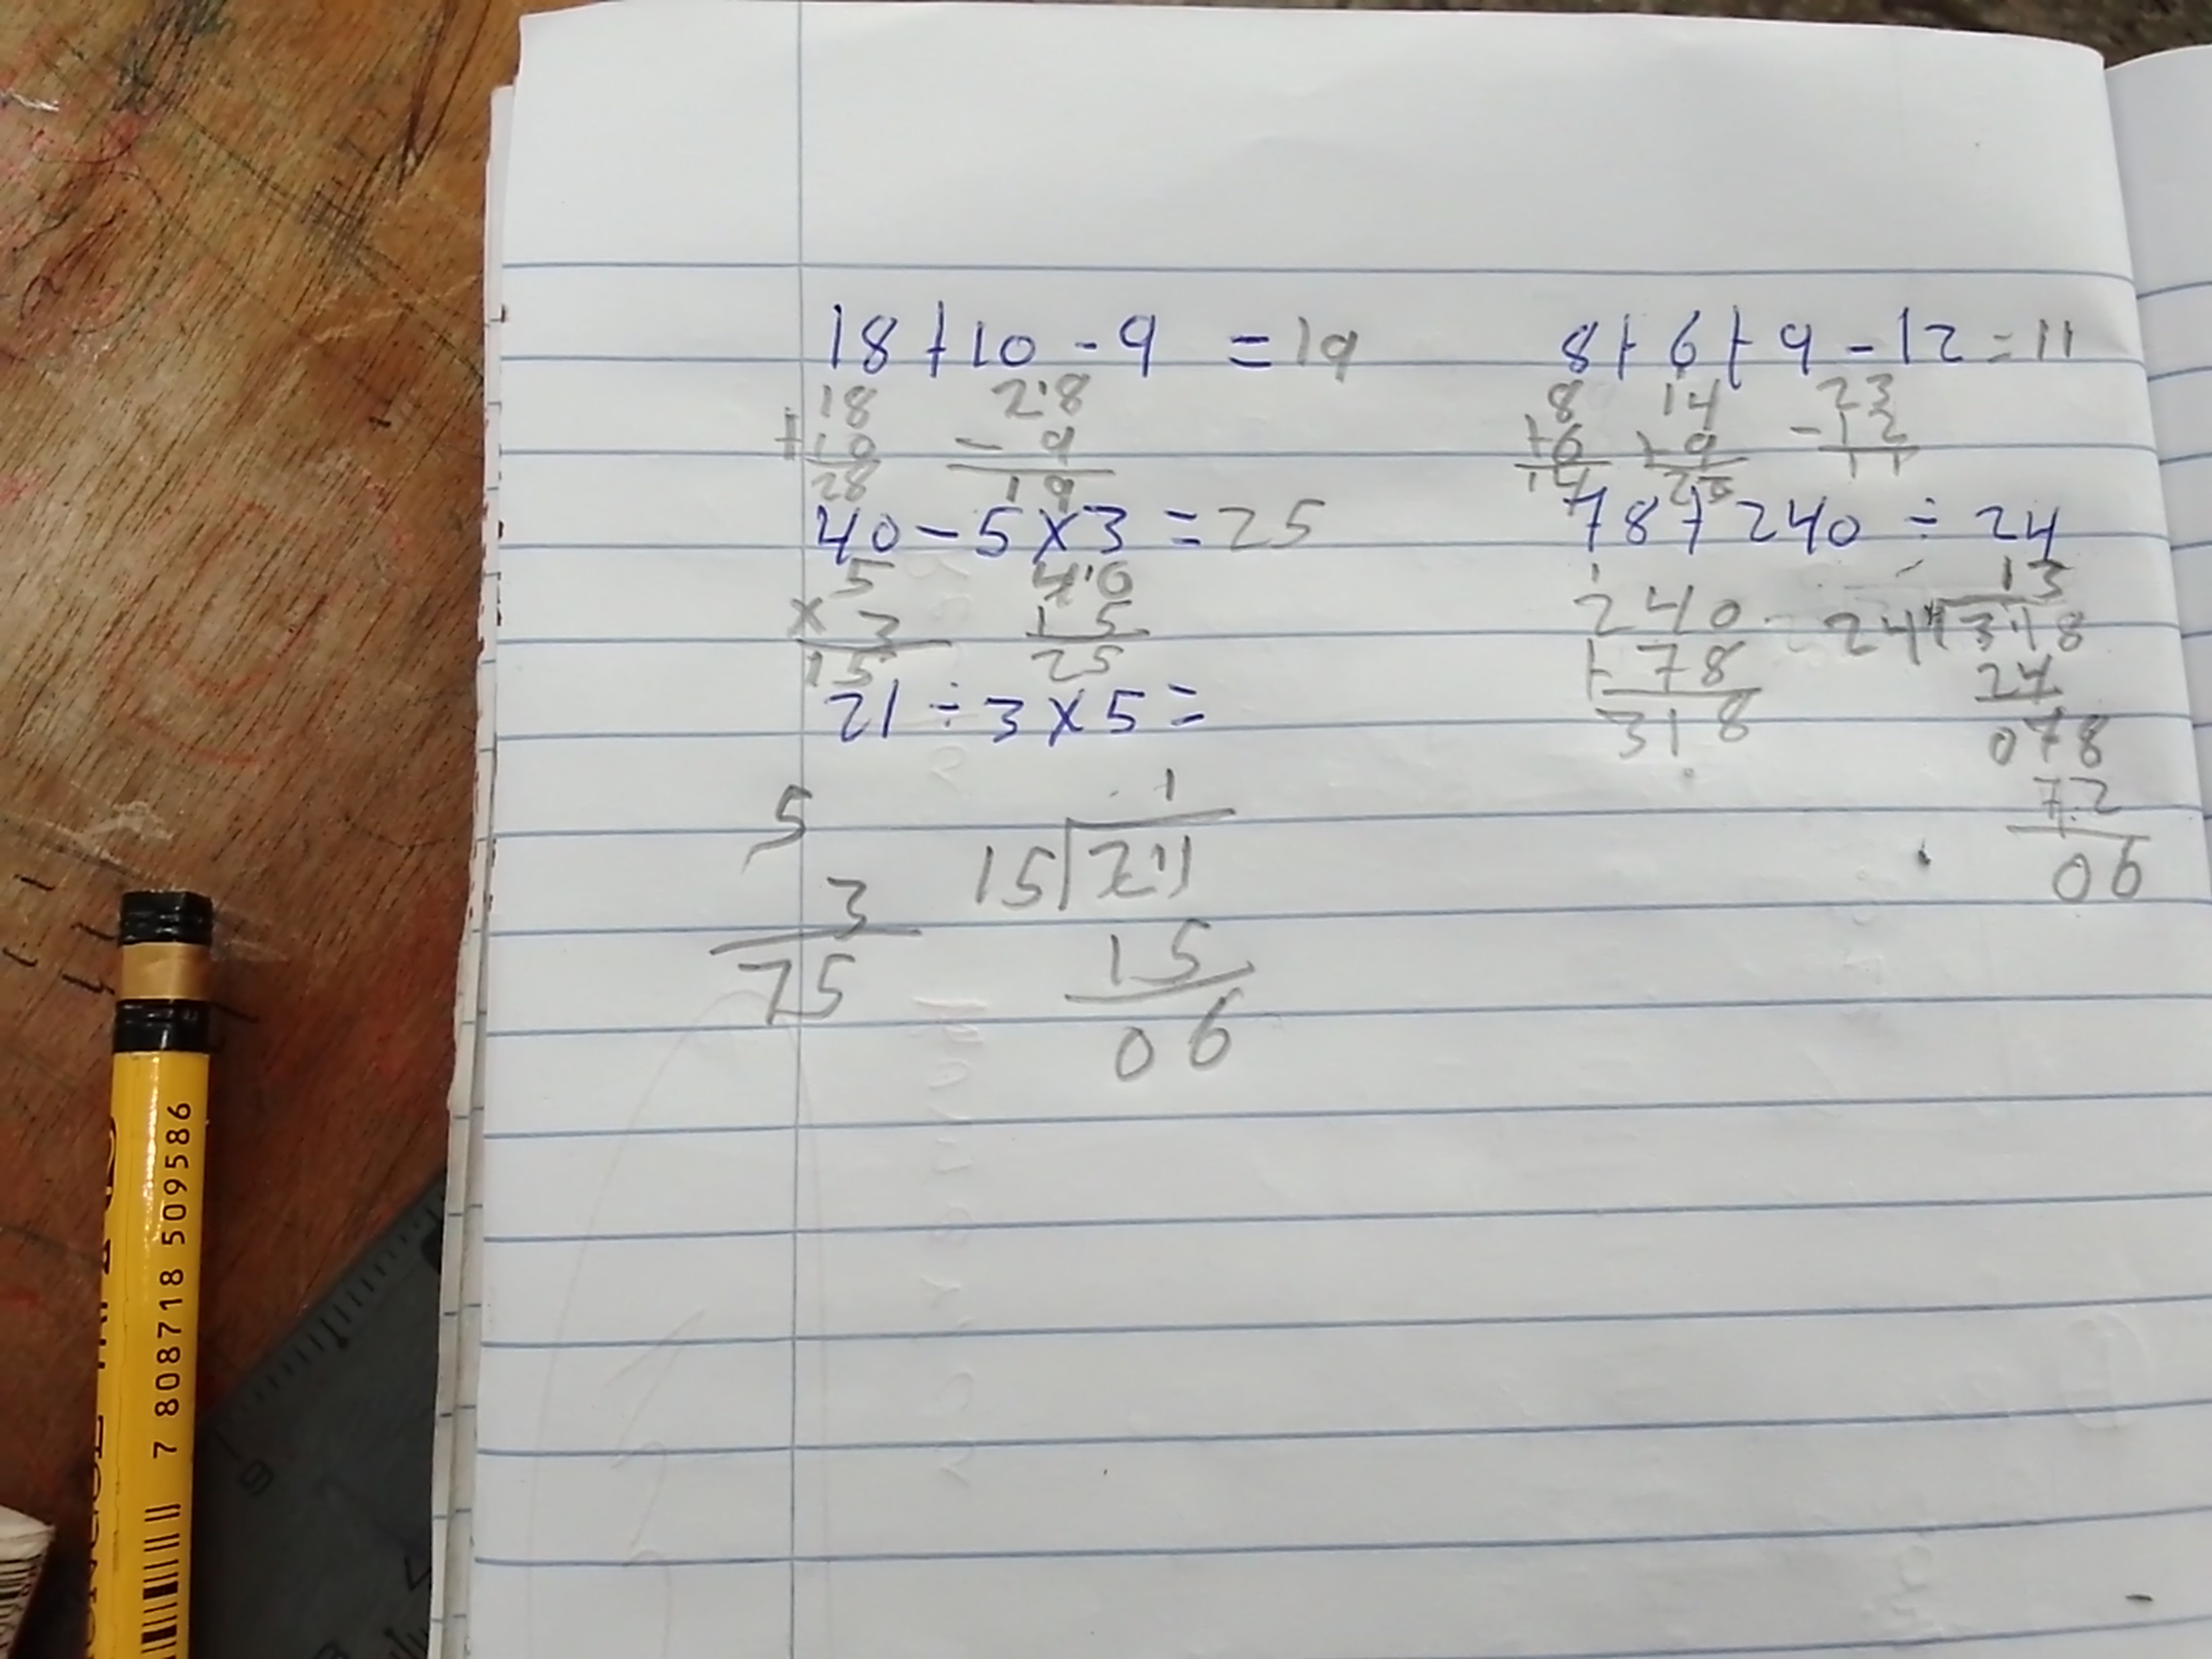 18 + 10 - 9 = 19
18 28
+10 - 9
28 19
40 - 5 x 3 = 25
5 40
x 3 15
15 25
21 ÷ 3 x 5 =
5 1
3 15 21
75 15
06
8 + 6 + 9 - 12 = 11
8 14 23
+6 +9 -12
14 23 11
78 + 240 ÷ 24
1 13
240 24 318
+ 78 24
318 078
72
06
7 808718 509586